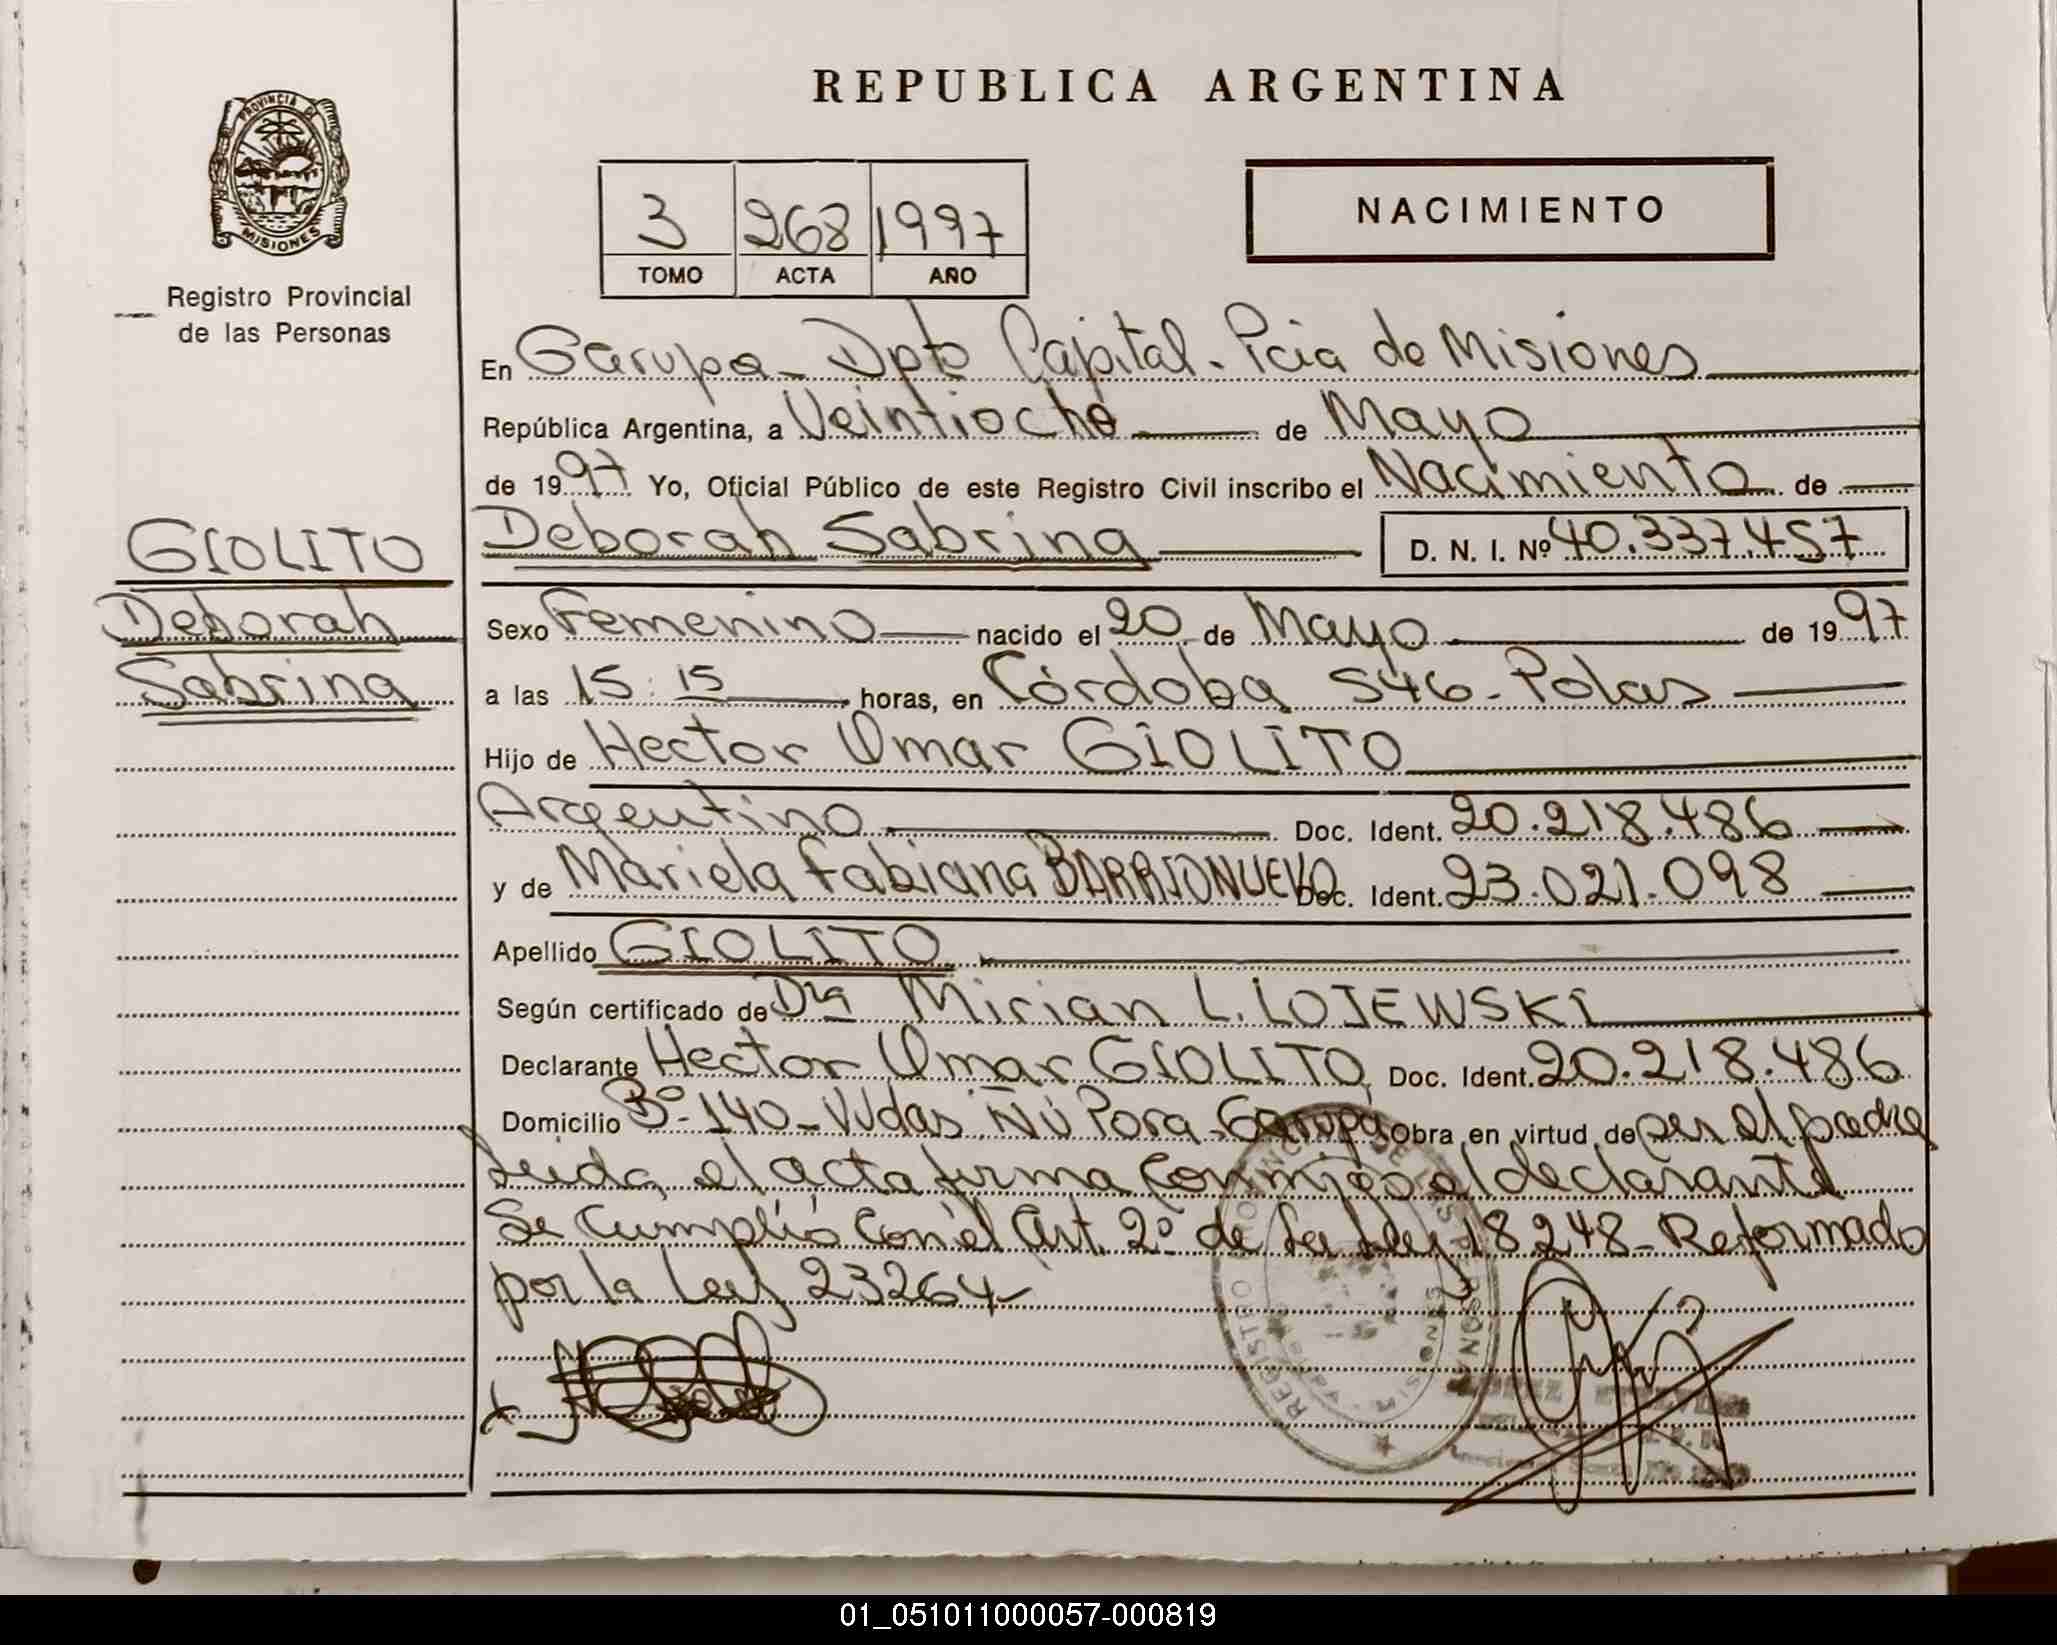 REPUBLICA ARGENTINA
PROVINCIA DE
MISIONES
Registro Provincial
de las Personas
3 268 1997
TOMO ACTA AÑO
NACIMIENTO
En Garupa - Dpto Capital - Pcia de Misiones
República Argentina, a Veintiocho de Mayo
de 1997 Yo, Oficial Público de este Registro Civil inscribo el Nacimiento de
GIOLITO
Deborah
Sabrina
Deborah Sabrina D. N. I. Nº 40.337.457
Sexo Femenino nacido el 20 de Mayo de 1997
a las 15:15 horas, en Córdoba 546 - Pdas
Hijo de Hector Omar GIOLITO
Argentino Doc. Ident. 20.218.486
y de Mariela Fabiana BARRIONUEVO Doc. Ident. 23.021.098
Apellido GIOLITO
Según certificado de Dra Mirian L. LOJEWSKI
Declarante Hector Omar GIOLITO, Doc. Ident. 20.218.486
Domicilio Bº 140 - Vvdas Ñú Pora - Garupa Obra en virtud de ser el padre
Leida el acta firma conmigo el declarante
Se Cumplió con el Art. 2º de la Ley 18248 - Reformado
por la Ley 23264 -
REGISTRO PROVINCIAL DE LAS PERSONAS
01_051011000057-000819